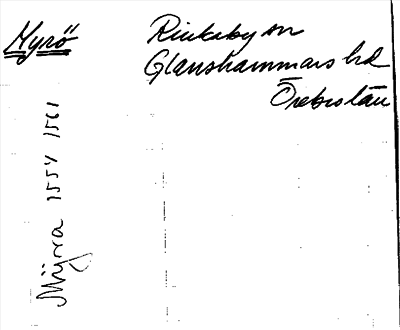 Myrö
Rinkaby sn
Glanshammars hd
Örebro län
Myrra 1554 1561